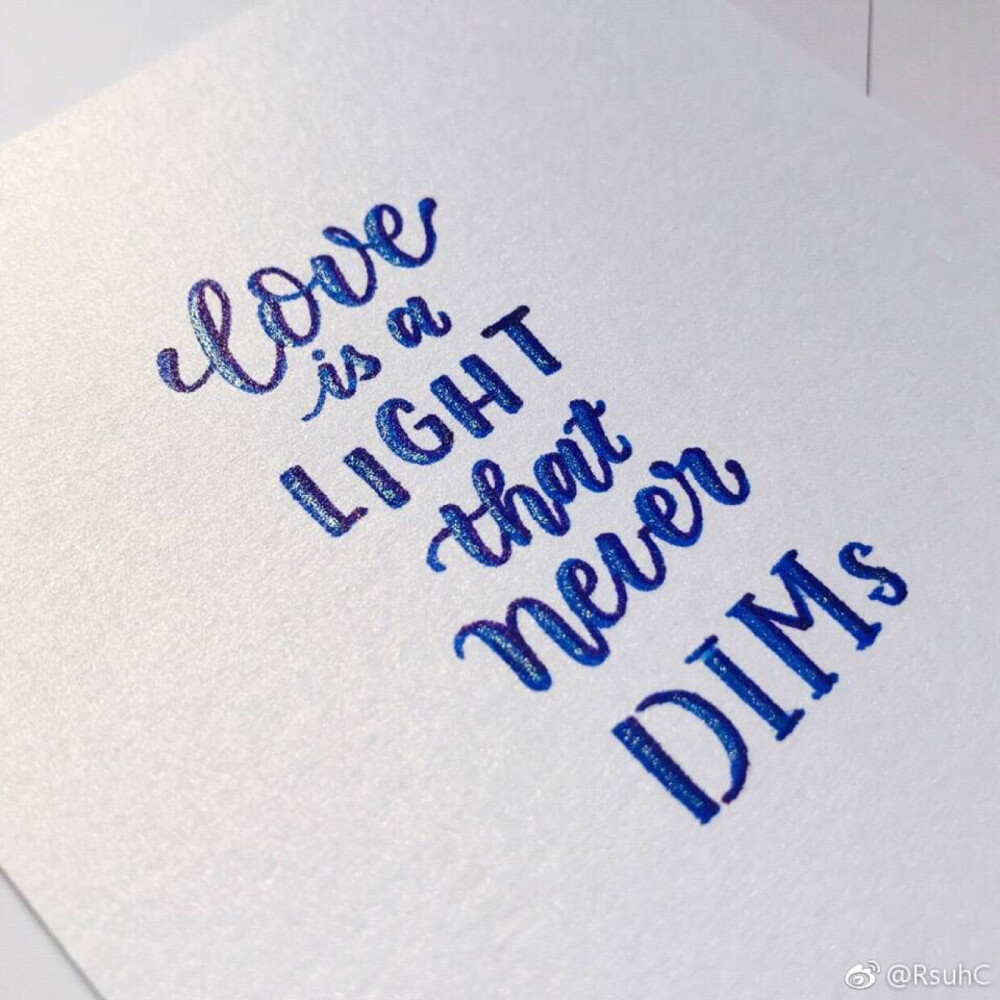 love
is a
LIGHT
that
never
DIMs
@RsuhC